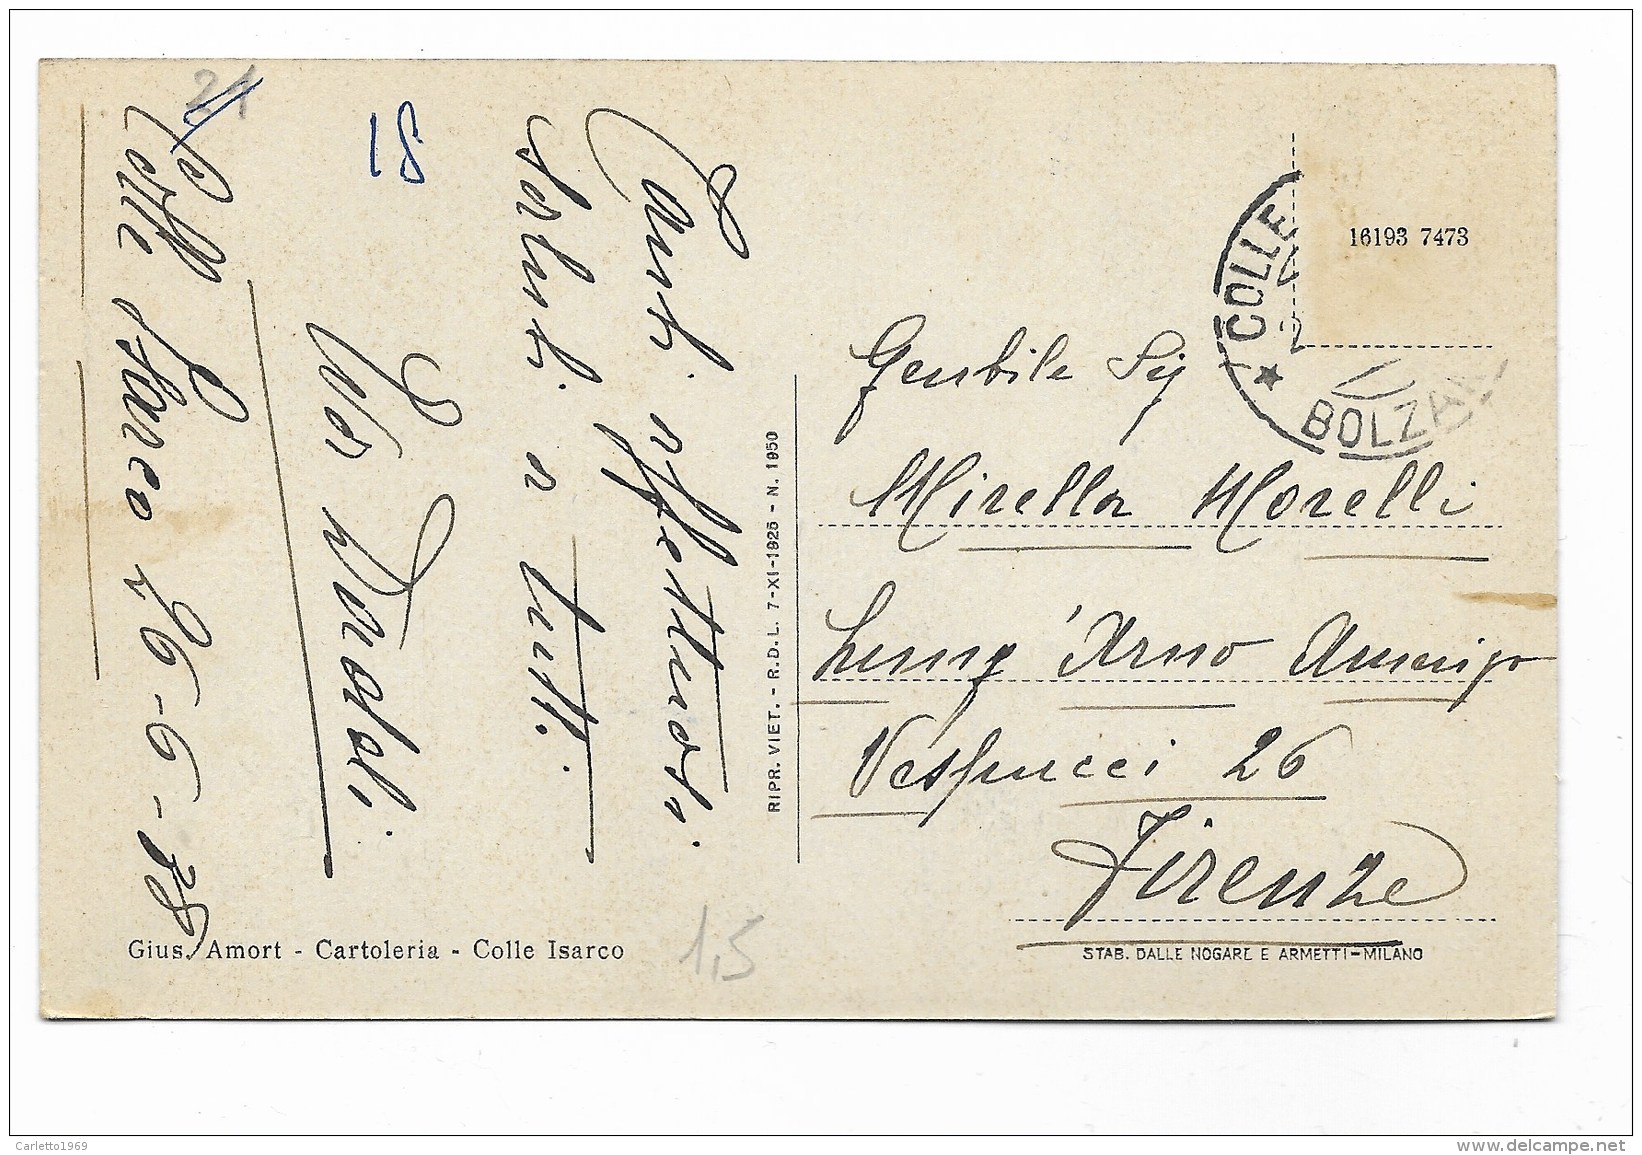 21
18
Colle Isarco 26-6-38
Tanti affettuosi
saluti a tutti.
16193 7473
* COLLE
BOLZA
Gentile Sig
Mirella Morelli
Lung'Arno Amerigo
Vespucci 26
Firenze
RIPR. VIET. - R.D.L. 7-XI-1925 - N. 1950
Gius. Amort - Cartoleria - Colle Isarco
1,5
STAB. DALLE NOGARE E ARMETTI-MILANO
Carletto1969
delcampe.net